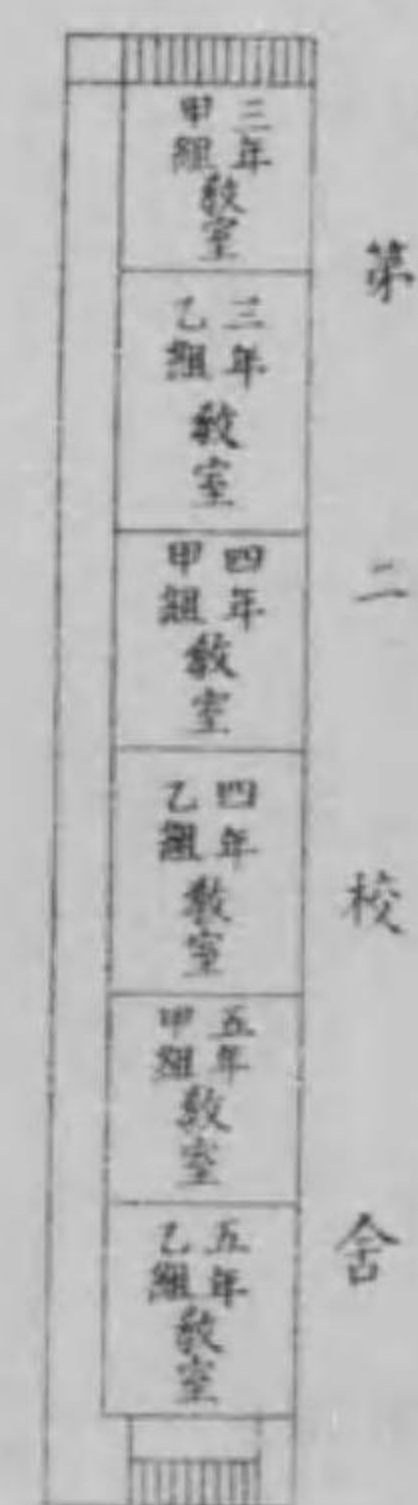 第二校舎
三年
甲組
教室
三年
乙組
教室
四年
甲組
教室
四年
乙組
教室
五年
甲組
教室
五年
乙組
教室